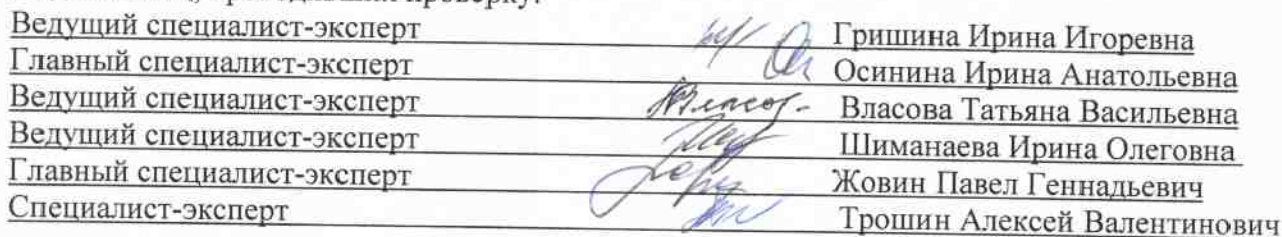 проверку:
Ведущий специалист-эксперт Гришина Ирина Игоревна
Главный специалист-эксперт Осинина Ирина Анатольевна
Ведущий специалист-эксперт Власова Татьяна Васильевна
Ведущий специалист-эксперт Шиманаева Ирина Олеговна
Главный специалист-эксперт Жовин Павел Геннадьевич
Специалист-эксперт Трошин Алексей Валентинович